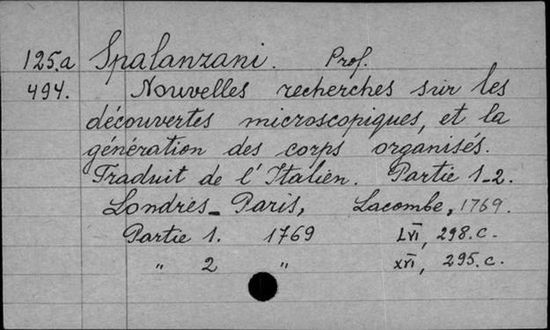 125.a Spalanzani. Prof.
494. Nouvelles recherches sur les
découvertes microscopiques, et la
génération des corps organisés.
Traduit de l'Italien. Partie 1-2.
Londres - Paris, Lacombe, 1769.
Partie 1. 1769 LVI, 298.c.
" 2 " XVI, 295.c.